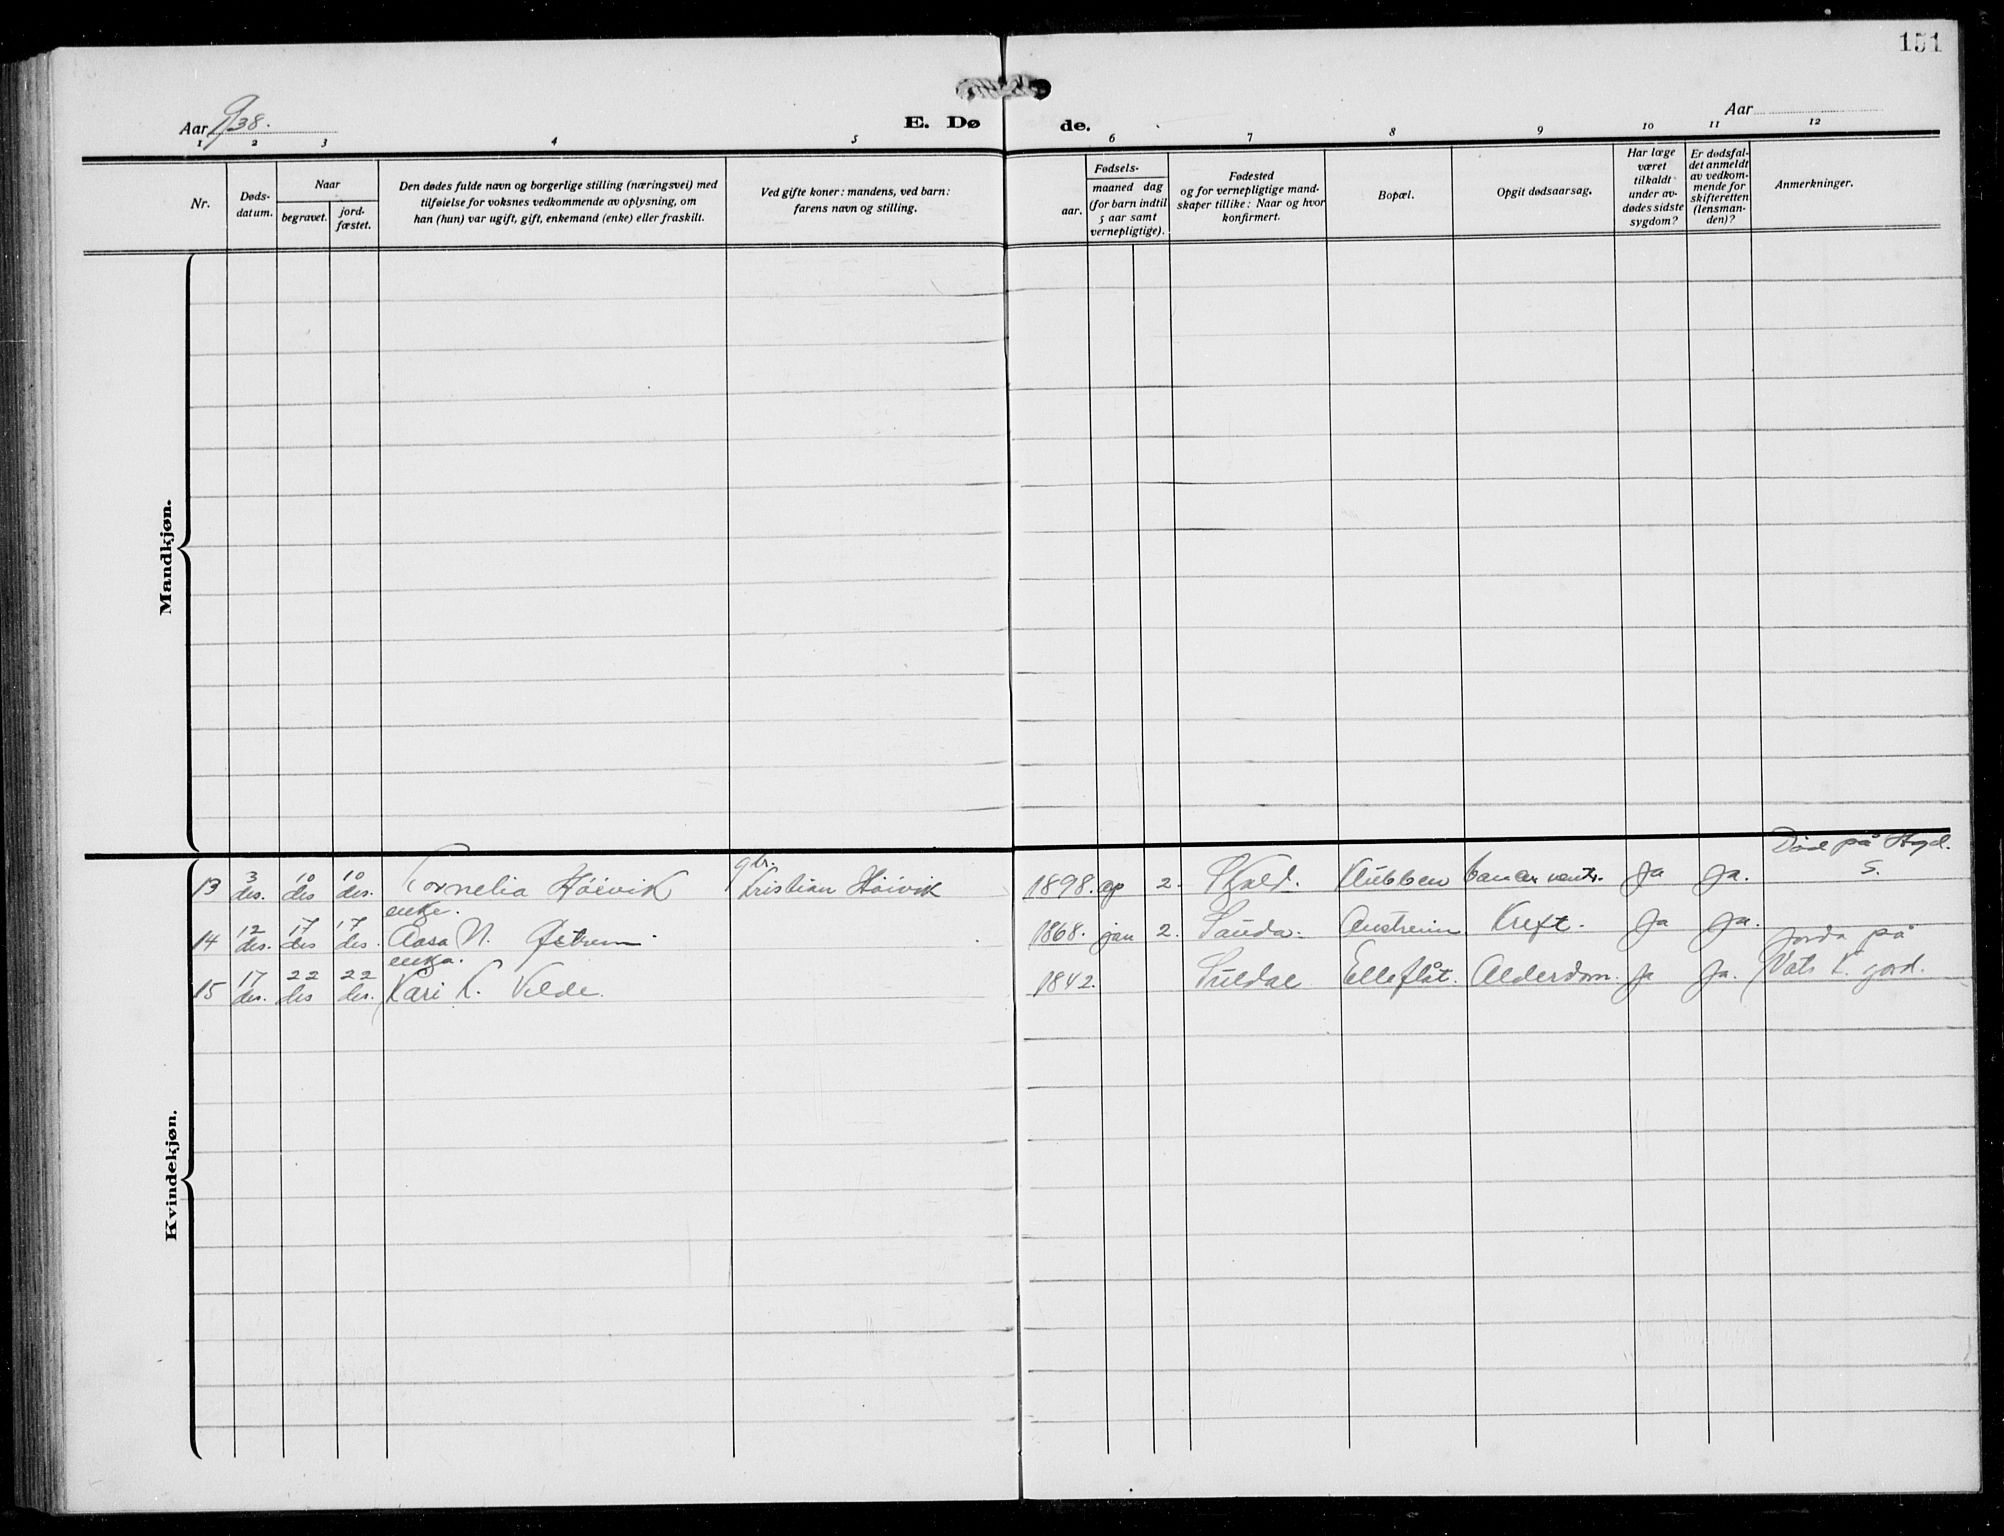 151
Aar 1938.
E. Dø
de.
Aar
1 2 3 4 5 6 7 8 9 10 11 12
Nr.
Døds-
datum.
Naar
begravet.
jord-
fæstet.
Den dødes fulde navn og borgerlige stilling (næringsvei) med
tilføielse for voksnes vedkommende av oplysning, om
han (hun) var ugift, gift, enkemand (enke) eller fraskilt.
Ved gifte koner: mandens, ved barn:
farens navn og stilling.
Fødsels-
aar.
maaned dag
(for barn indtil
5 aar samt
vernepligtige).
Fødested
og for vernepligtige mand-
skaper tillike: Naar og hvor
konfirmert.
Bopæl.
Opgit dødsaarsag.
Har læge
været
tilkaldt
under av-
dødes sidste
sygdom?
Er dødsfal-
det anmeldt
av vedkom-
mende for
skifteretten
(lensman-
den)?
Anmerkninger.
Mandkjøn.
Kvindekjøn.
3 10 10 gbr. Død på Hgd.
13 des. des des. Kornelia Høivik Kristian Høivik 1898. ap 2. Skjold. Klubben cancer ventr. Ja Ja. S.
12 17 17 enke.
14 des. des des. Aasa N. Østrem 1868. jan 2. Sauda. Austreim Kreft. Ja Ja.
17 22 22 enka. Jorda på
15 des. des des. Kari K. Velde. 1842. Suldal Elleflåt. Alderdom. Ja Ja. Vats K. gard.